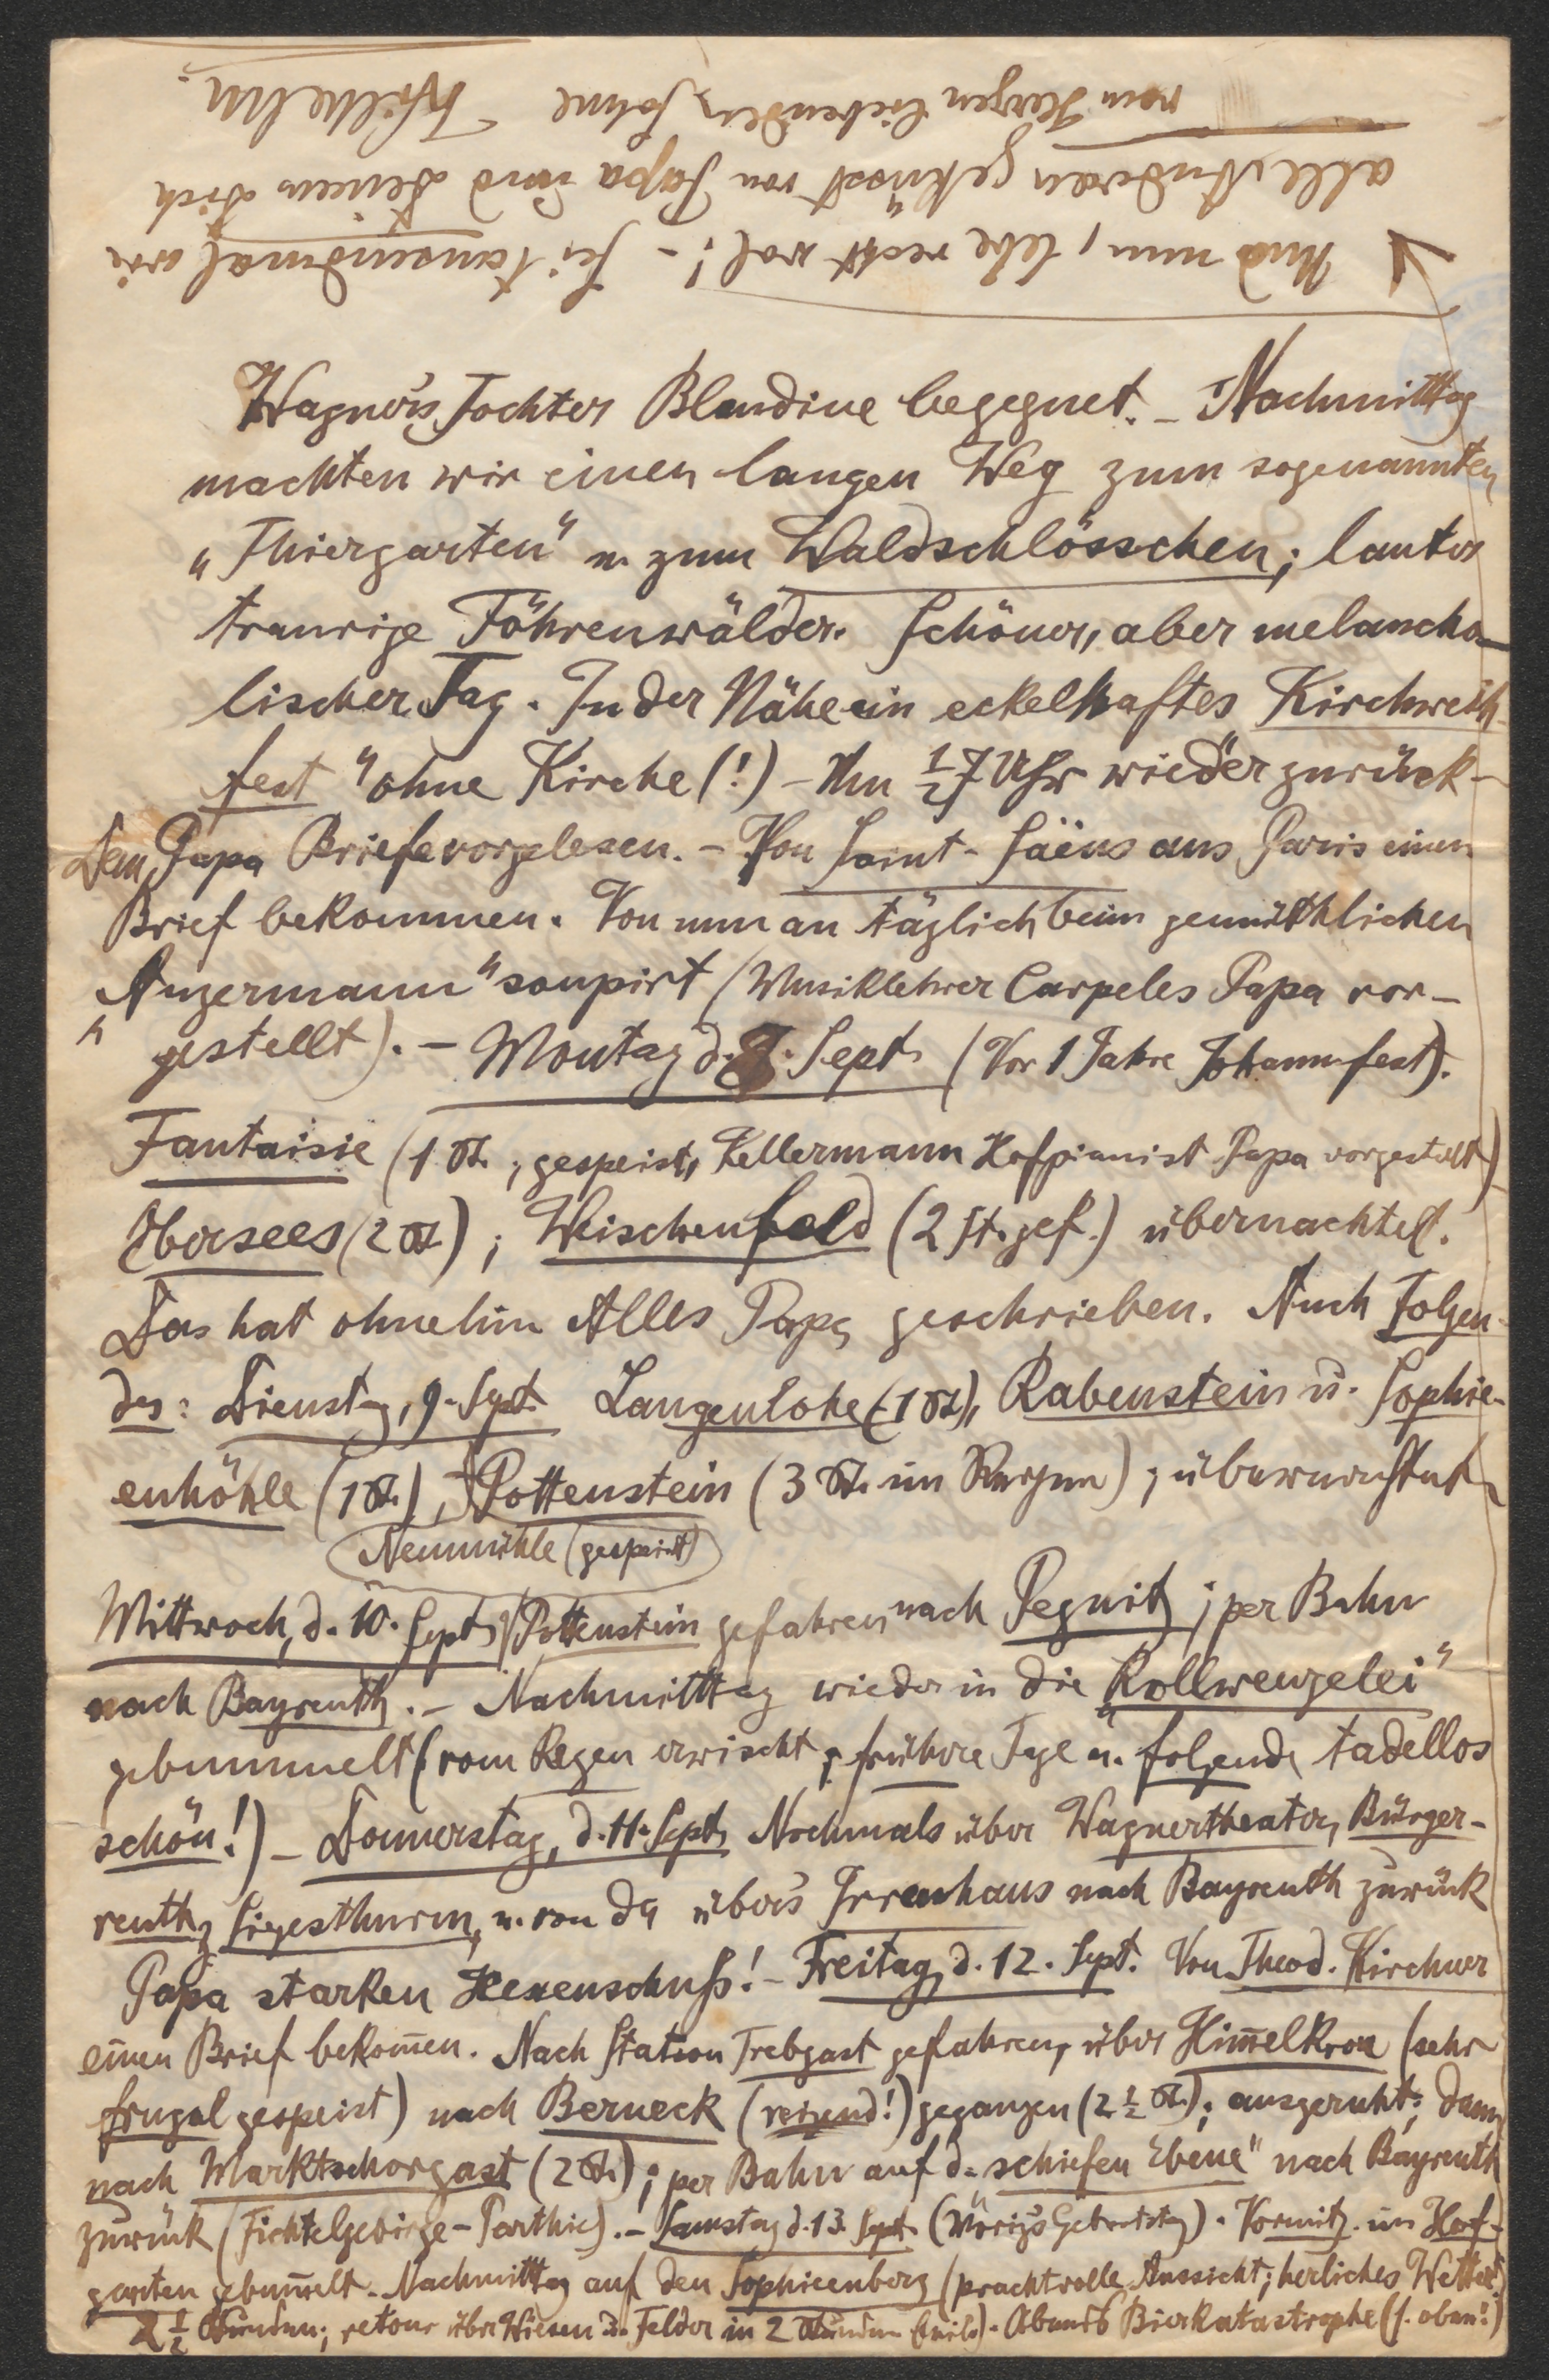 Wagner's Tochter Blandine begegnet. – Nachmittag
machten wir einen langen Weg zum sogenannten
„Thiergarten" u. zum Waldschlösschen; lauter
traurige Föhrenwälder. Schöner, aber melancho-
lischer Tag. In der Nähe ein eckelhaftes Kirchweih-
fest "ohne Kirche (!) – Um ½7 Uhr wieder zurück –
Dem Papa Briefe vorgelesen. – Von Saint-Säens aus Paris einen
Brief bekommen. Von nun an täglich beim gemüthlichen
„Angermann" soupirt (Musiklehrer Carpeles Papa vor-
gestellt). – Montag d. 8. Sept. (Vor 1 Jahre Johannfest).
Fantaisie (1 St., gespeist, Kellermann Hofpianist Papa vorgestellt)
Obersees (2 St.); Weischenfeld (2 St. gef.) übernachtet.
Das hat ohnehin Alles Papa geschrieben. Auch Folgen-
des: Dienstag, 9. Sept. Langenlohe (1 St.), Rabenstein u. Sophie-
enhöhle (1 St.), Pottenstein (3 St. im Regen); übernachtet
Neumühle (gespeist)
Mittwoch, d. 10. Sept. Pottenstein gefahren nach Pegnitz; per Bahn
nach Bayreuth. – Nachmittag wieder in die „Rollwenzelei"
gebummelt (vom Regen erwischt; frühere Tage u. folgende tadellos
schön!) – Donnerstag, d. 11. Sept. Nochmals über Wagnertheater, Bürger-
reuth, Siegesthurm, u. von da über's Irrenhaus nach Bayreuth zurück
Papa starken Hexenschuß! – Freitag, d. 12. Sept. Von Theod. Kirchner
einen Brief bekom̄en. Nach Station Trebgast gefahren, über Him̄elkron (sehr
frugal gespeist) nach Berneck (reizend!) gegangen (2½ St.); ausgeruht; dann
nach Marktschorgast (2 St.); per Bahn auf d. schiefen Ebene" nach Bayreuth
zurück (Fichtelgebirge-Parthie). – Samstag d. 13. Sept. (Geburtstag). Vormitg. im Hof-
garten gebum̄elt. Nachmittag auf den Sophieenberg (prachtvolle Aussicht; herliches Wetter)
2½ Stunden; retour über Wiesen u. Felder in 2 Stunden. Abends Bierkatastrophe (s. oben!)
Und nun, lebe recht wol! – Sei tausendmal wie
alle Anderen geküsst von Papa und Deinem Dich
vom Herzen liebenden Sohne Wilhelm.